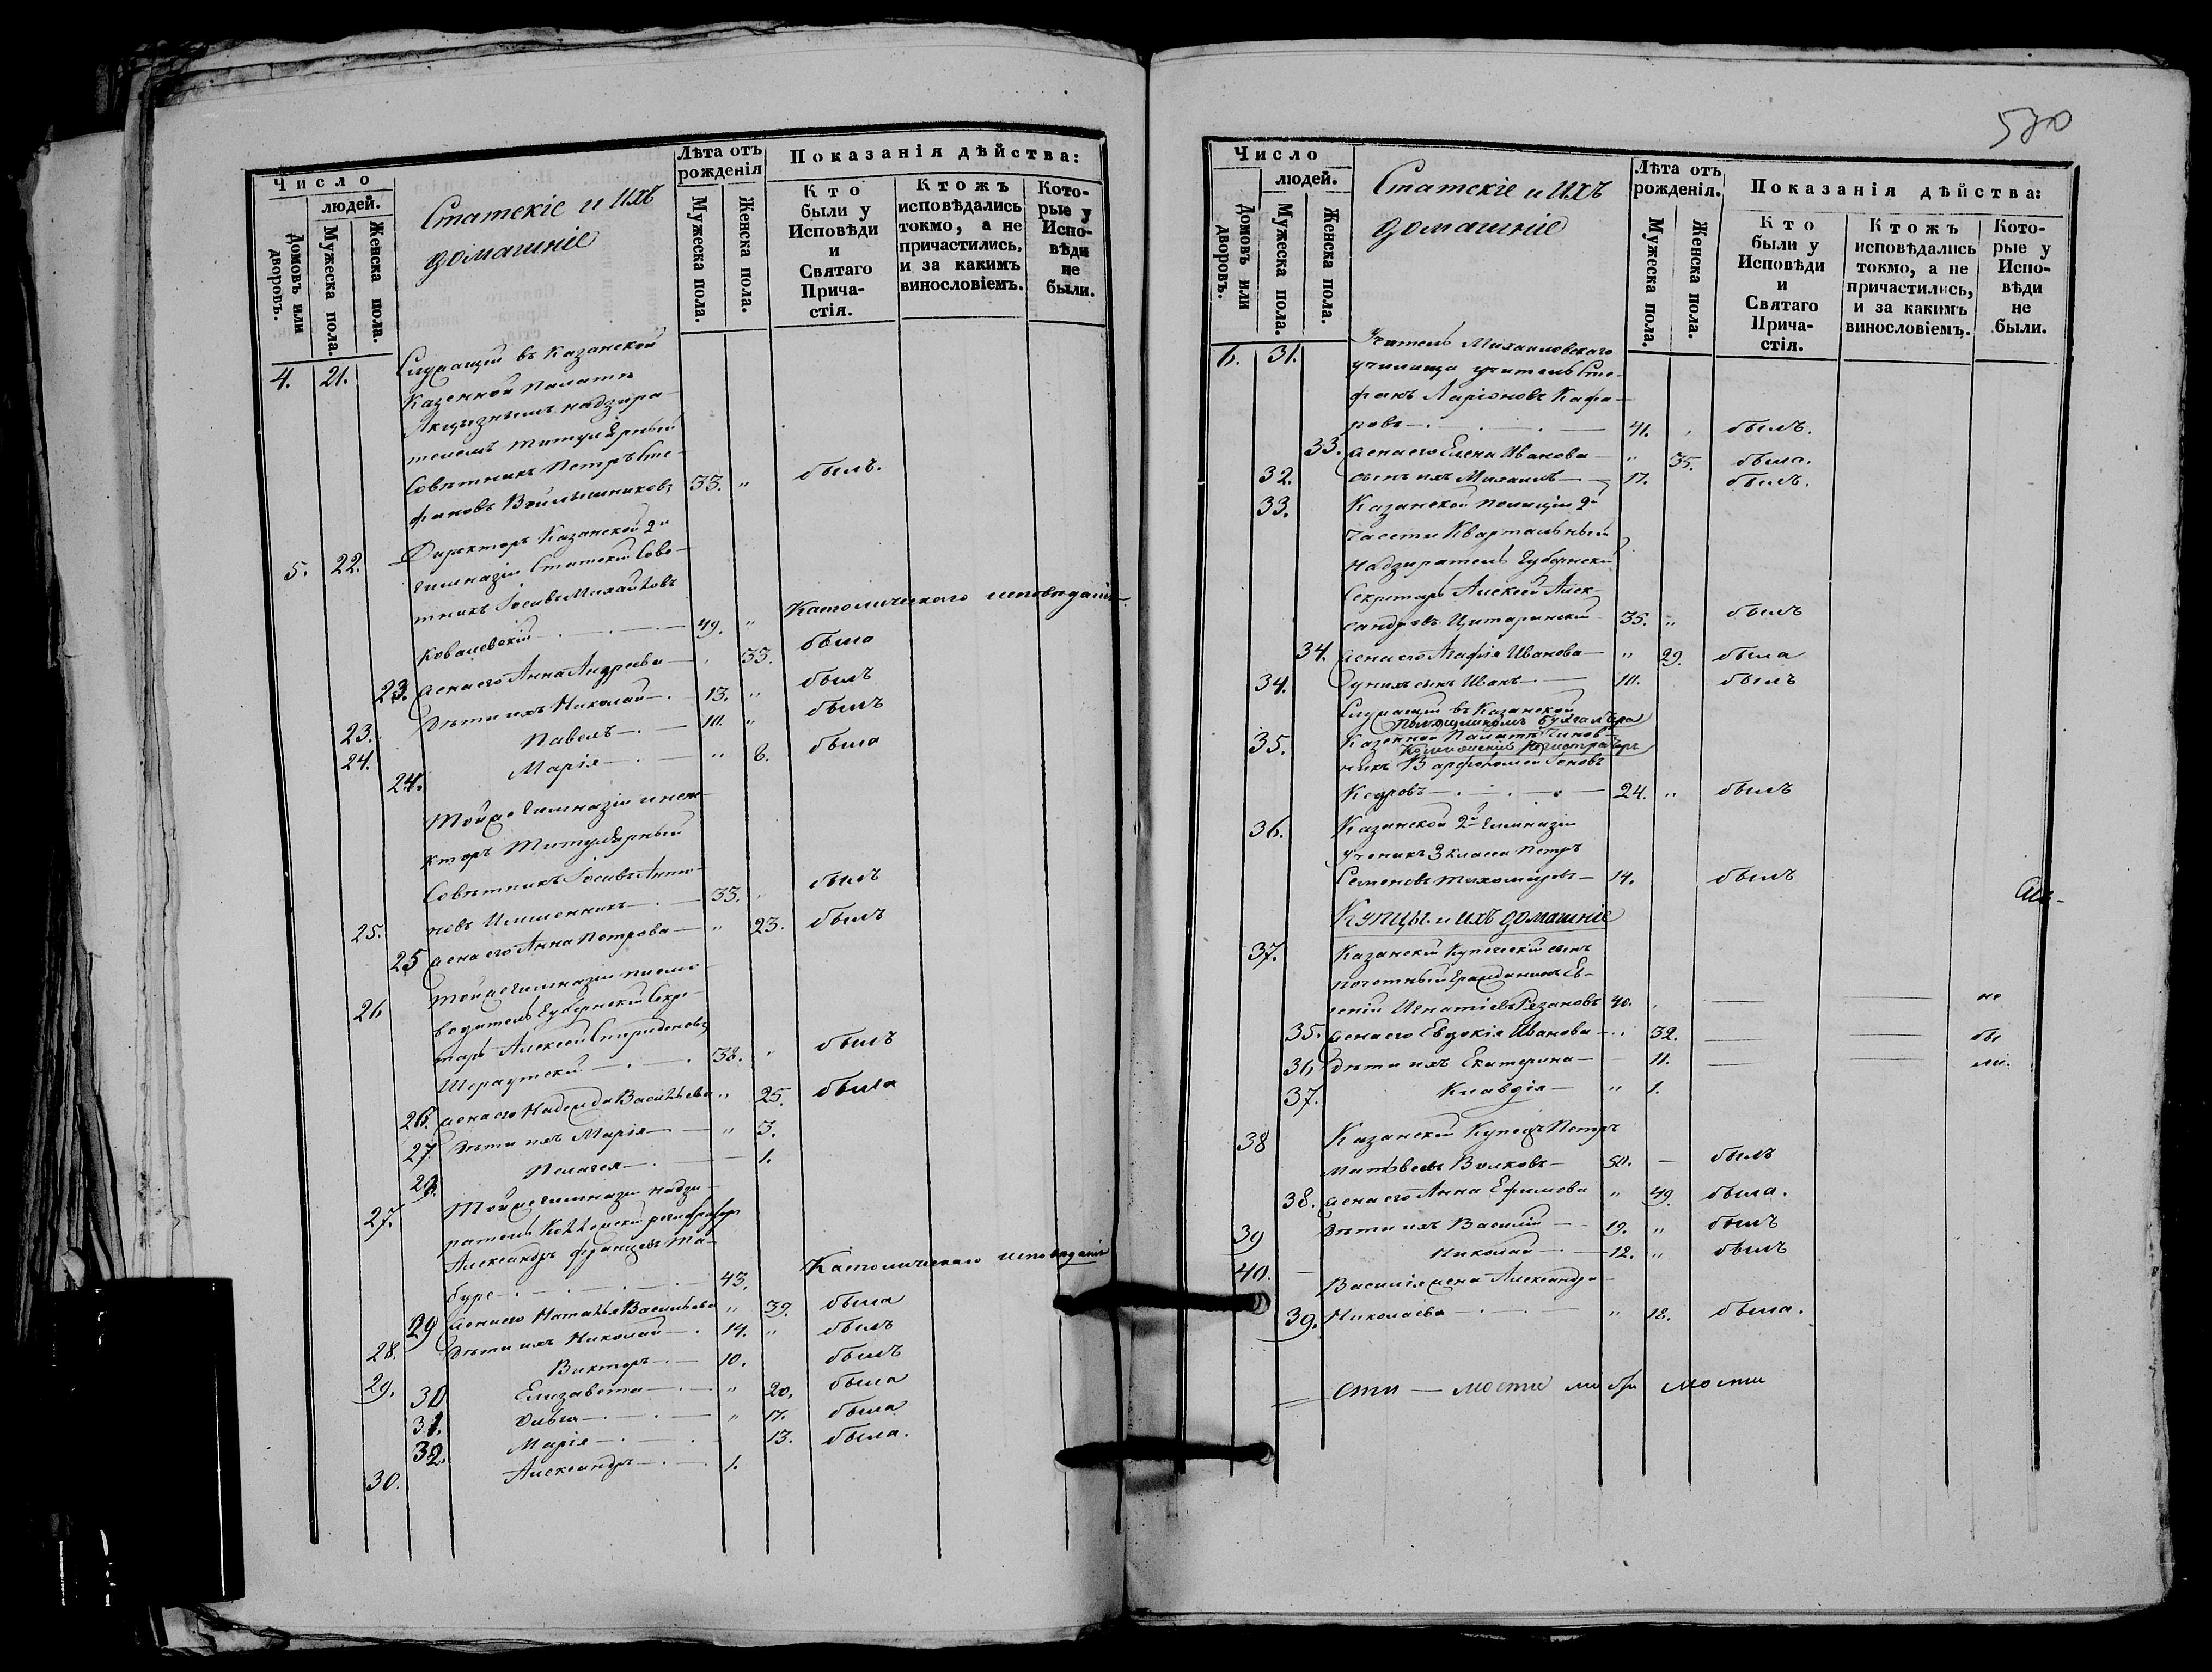 Число
людей.
Домовъ или дворовъ.
Мужеска пола.
Женска пола.
Статскіе и Ихъ
домашніе
Лѣта отъ рожденія
Мужеска пола.
Женска пола.
Показанія дѣйства:
Кто были у Исповѣди и Святаго Прича-стія.
Ктожъ исповѣдались токмо, а не причастились, и за какимъ винословіемъ.
Кото-рые у Испо-вѣди не были.
4. 21. Служащій въ Казанской
Казенной Палатѣ
Акцызнымъ надзира-
телемъ Титулярный
Совѣтникъ Петръ Сте-
фановъ 33. " былъ.
5. 22. Директоръ Казанской 2й
Гимназіи Статскій Совѣ-
тникъ Іосифъ Михайловъ
Ковалевскій 49. " Католическаго исповѣданія
23. жена его Анна Андреева 33. была
23. Дѣти ихъ Николай 13. " былъ
24. Павелъ 10. " былъ
24. Марія " 8. была
Тойже Гимназіи инспе-
кторъ Титулярный
Совѣтникъ Іосифъ Анто-
25. новъ 33. былъ
25 жена его Анна Петрова " 23. былъ
26 Тойже гимназіи письмо-
водитель Губернскій Секре-
тарь Алексей Спиридоновъ
38. былъ
26. жена его Надежда Васильева " 25. была
27 Дѣти ихъ Марія " 3.
Пелагея 1.
27. Тойже гимназіи надзи-
ратель Коллежскій регистраторъ
Александръ Францовъ Та-
43. Католическаго исповѣданія
29 жена его Наталья Васильева " 39. была
28. Дѣти ихъ Николай 14. " былъ
29. Викторъ 10. былъ
30 Елизавета " 20. была
31. Ольга " 17. была
32. Марія 13. была.
30. Александръ 1.
570
Число
людей.
Домовъ или дворовъ.
Мужеска пола.
Женска пола.
Статскіе и ихъ
домашніе
Лѣта отъ рожденія.
Мужеска пола.
Женска пола.
Показанія дѣйства:
Кто были у Исповѣди и Святаго Прича-стія.
Ктожъ исповѣдались токмо, а не причастились, и за какимъ винословіемъ.
Кото-рые у Испо-вѣди не были.
6. 31. Учитель Михаиловскаго
училища учитель Сте-
фанъ Ларіоновъ Кафа-
ровъ 41. былъ.
33. жена его Елена Иванова " 35. была.
32. сынъ ихъ Михаилъ 17. былъ.
33. Казанской Полиціи 2й
Части Квартальный
Надзиратель Губернскій
Секретарь Алексей Алек-
сандровъ 35. " былъ
34. жена его Агафія Иванова " 29. была
34. У нихъ сынъ Иванъ 10. былъ
Служащій въ Казанской
помощникомъ бухгалтера
35. Казенной Палатѣ чинов-
Коллежскій регистраторъ
никъ Варфоломей
Кедровъ 24. " былъ
36. Казанской 2й Гимназіи
ученикъ 3 класса Петръ
Семеновъ Тихомировъ 14. былъ
Купцы и ихъ домашніе
37. Казанскій Купеческій сынъ
почетный гражданинъ Ев-
геній Игнатіевъ Резановъ 40. не
35. жена его Евдокія Иванова 32. бы
36. дѣти ихъ Екатерина 11. ли.
37. Клавдія " 1.
38 Казанскій Купецъ Петръ
Матвѣевъ Волковъ 50. былъ
38. жена его Анна Ефимова " 49. была.
39 Дѣти ихъ Василій 19. " былъ
40. Николай 12. " былъ
Василія жена Александра
39. Николаева " 18. была.